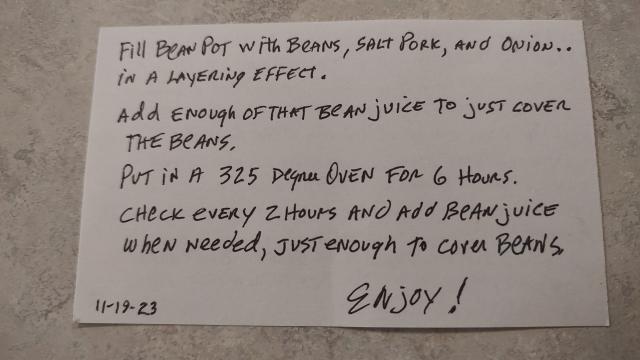 Fill Bean Pot with Beans, Salt Pork, and Onion..
in a layering effect.
Add enough of that bean juice to just cover
the beans.
Put in a 325 Degree oven for 6 hours.
Check every 2 hours and add bean juice
when needed, just enough to cover beans.
Enjoy!
11-19-23